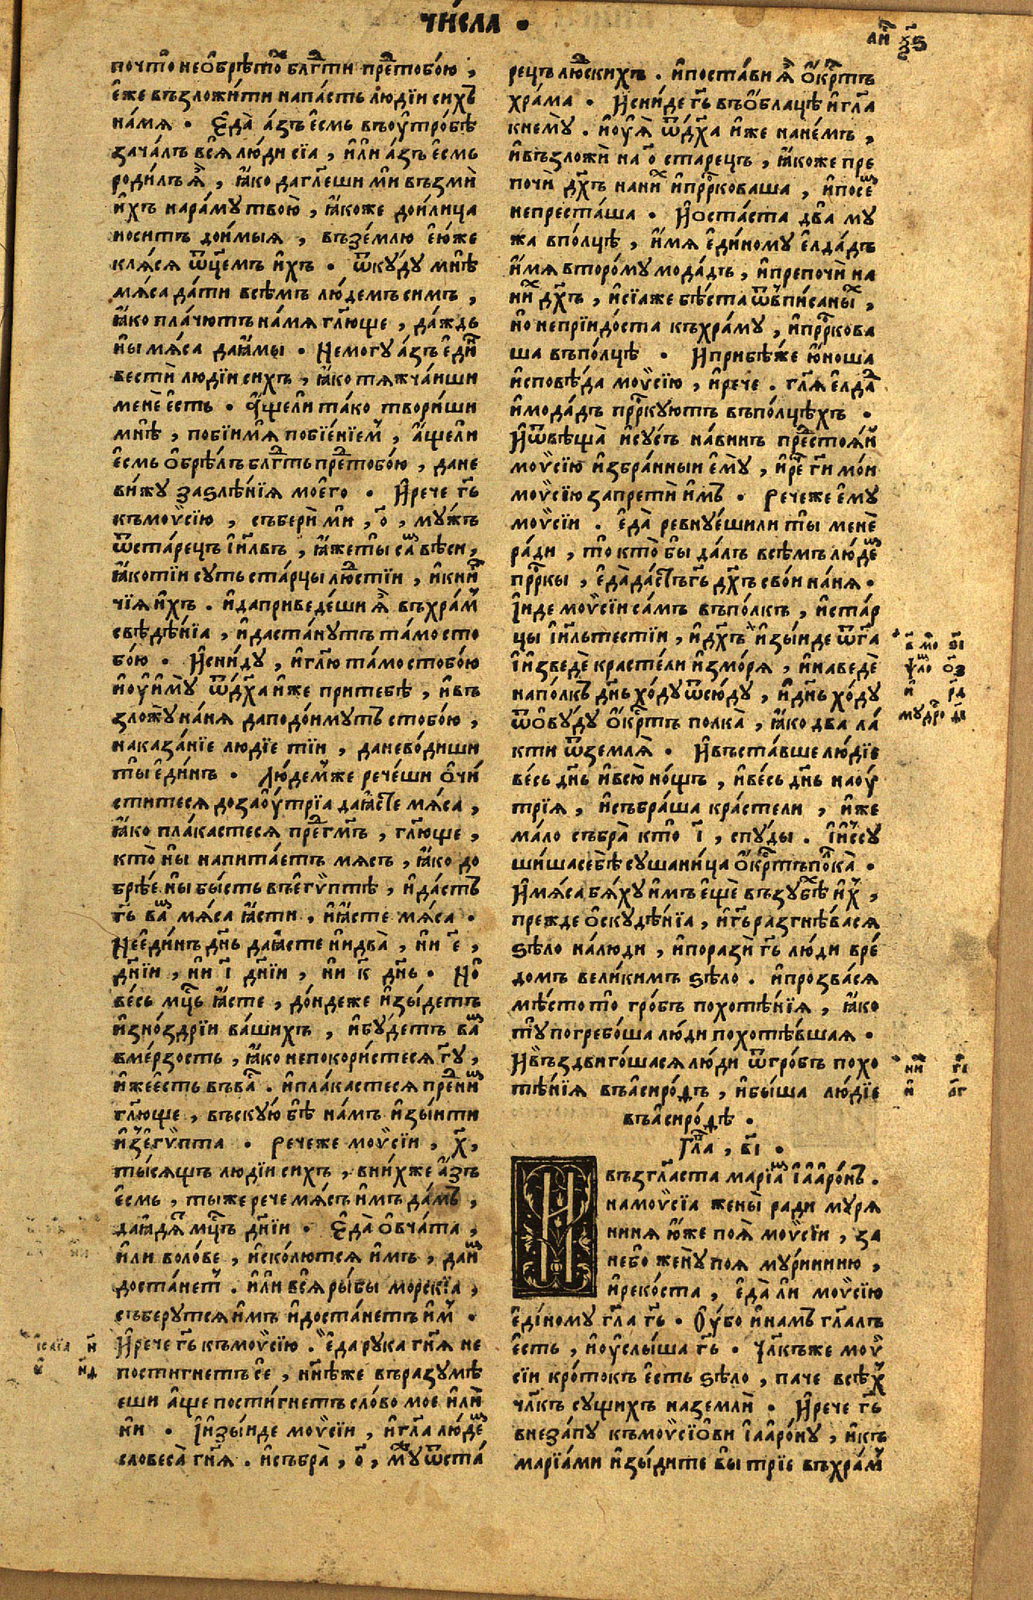 чи́сла .
почто̀ необрѣто́х блг҃ти пре́дтобо́ю ,
е́же възложи́ти напа́сть лю́дїи си́хъ
на́мя . Еда̀ а́зъ е́смь въоутро́бѣ
зача́лъ вся̀ лю́ди сїа , и́ли а́зъ е́смь
роди́лъ я҆̀ , ꙗ҆́ко даглеши ми възмѝ
и҆́хъ нара́му твою̀ , ꙗ҆́коже дои́лица
но́ситъ дои́мыя , въ зе́млю е҆́юже
кля́ся ѿц҃емъ и҆́хъ . ѿку́ду мнѣ̀
мя́са да́ти всѣ́мъ лю́демъ си́мъ ,
ꙗ҆́ко пла́чютъ на́мя гл҃юще , да́ждь
ны̀ мя́са даꙗ҆мы̀ . Немогу̀ а҆́зъ е҆ди́н
вестѝ лю́дїи си́хъ , ꙗ҆́ко тя́жчаиши
менѐ е҆́сть . А҆́щели та́ко твори́ши
мнѣ̀ , побі́имя побїе́нїем , а҆́щели
е҆́смь о҆брѣ́лъ блг҃ть предтобо́ю , дане
ви́жу заѕлѣ́нїя моего̀ . И҆рече гь҃
къмоѵсїю , съберѝ мѝ , о҃ , му́жъ
ѿста́рецъ і҆и҃лвъ , ꙗ҆́жеты̀ са́м вѣ́си ,
ꙗ҆́котїи су́ть ста́рцы лю́дстїи , и҆кни́г
чїя и҆́хъ . и҆даприведе́ши я҆̀ въхра́м
свѣдѣ́нїа , и҆даста́нутъ та́мо сто
бо́ю . И҆сни́ду , и҆гл҃ю та́мо стобо́ю
и҆оу҆иму̀ ѿдх҃а и҆́же притебѣ̀ , и҆въ
зложу̀ на́ня даподо́имутъ стобо́ю ,
наказа́нїе лю́дїе тїи , даневоди́ши
ты̀ е҆ди́нъ . Лю́демже рече́ши о҆чи́
стите́ся дозаоу҆трїа даꙗ҆́сте мя́са ,
ꙗ҆́ко пла́кастеся пре́дгмъ , гл҃юще ,
кто̀ ны̀ напита́етъ мя́съ , ꙗ҆́ко до
брѣ́е ны̀ бы́сть въегѵ́птѣ , и҆да́стъ
гь҃ ва́м мя́са ꙗ҆́сти , и҆ꙗ҆́сте мя́са .
Нееди́нъ дн҃ь даꙗ҆́сте нидва̀ , ни е҃ ,
дн҃їи , ни і҃ дн҃їи , ни к҃ дн҃ь . Но
ве́сь мц҃ь ꙗ҆́сте , до́ндеже и҆зы́детъ
и҆зно́здрїи ва́шихъ , и҆бу́детъ ва́м
вме́рзость , ꙗ҆́ко непокори́стеся гу҃ ,
и҆́жеесть въва́с . и҆пла́кастеся пре́дним
гл҃юще , въску́ю бѣ̀ на́мъ и҆зы́ити
и҆зегѵ́пта . Речеже моѵсїи , х҃ ,
ты́сящъ лю́дїи си́хъ , вни́хже а҆́зъ
е҆́смь , ты́же рече мя́съ и҆́мъ да́мъ ,
даꙗдя́т мц҃ъ дн҃їи . Еда̀ о҆вча́та ,
и҆́ли воло́ве , и҆ско́лются и҆́мъ , дани́м
доста́нет . и҆́ли вся̀ ры́бы морскїа ,
съберу́тся и҆́мъ и҆доста́нетъ и҆́м .
И҆рече гь҃ къмоѵсїю . еда рука гн҃я не
пости́гнетъ се , ни҃нѣже въразумѣ́
еши а҆́ще пости́гнетъ сло́во мое и҆лѝ
ни . І҆изы́иде моѵсїи , и҆гл҃а лю́дем
словеса̀ гн҃я . и҆събра̀ , о҃ , му́ж ѿста́
рецъ лю́дскихъ . и҆поста́ви я҆̀ о҆́крстъ
хра́ма . И҆сни́де гь҃ въо҆́блацѣ и҆гл҃а
кнему̀ . и҆оу҆я̀ ѿдх҃а и҆́же нане́мъ ,
и҆възложѝ на о҃ ста́рецъ , ꙗ҆́коже пре
почѝ дх҃ъ нани́х и҆прр҃коваша , и҆посем
непреста́ша . И҆оста́ста два му́
жа впо́лцѣ , и҆́мя е҆ди́ному е҆лда́дъ
и҆́мя второ́му мода́дъ , и҆препочѝ на
ни́х дх҃ъ , и҆сїаже бѣ́ста ѿвписаны́х ,
но непрїидо́ста къхра́му , и҆прр҃кова
ша въпо́лцѣ . И҆прибѣ́же ю҆́ноша
и҆сповѣ́да моѵсїю , и҆рече . гл҃я е҆лда́д
и҆мода́дъ прр҃куютъ въпо́лцѣхъ .
И҆ѿвѣща̀ и҆су́съ на́винъ пре́дстояи
моѵсїю и҆збра́нныи е҆му̀ , и҆ре́ ги҃ мо́и
моѵсїю запретѝ и҆́мъ . Речеже е҆му
моѵсїи . е҆да̀ ревнуе́шили ты̀ менѐ
ра́ди , то̀ кто̀ бы̀ да́лъ всѣ́мъ лю́дем
прр҃кы , е҆да̀да́стъгь҃ дх҃ъ сво́и на́ня .
І҆иде моѵсїи са́мъ въпо́лкъ , и҆ста́р
цы і҆и҃льтестїи , и҆дх҃ъ и҆зы́иде ѿга҃
і҆изведѐ кра́стели и҆змо́ря , и҆наведѐ
напо́лкъ дн҃ь хо́ду ѿсю́ду , и҆дн҃ь хо́ду
ѿовуду о҆́крстъ полка̀ , ꙗ҆́ко два ла́
кти ѿземля̀ . И҆въста́вше лю́дїе
ве́сь дн҃ь и҆всю̀ но́щъ , и҆ве́сь дн҃ь наоу
трїя , и҆събра́ша кра́стели , и҆́же
ма́ло събра̀ кто̀ і҃ , спу́ды . І҆ису
ши́шасебѣ сушани́ца о҆́крстъполка̀ .
И҆мя́са бя́ху и҆́мъ е҆щѐ възубѣх и҆́х ,
пре́жде о҆скудѣ́нїа , и҆гь҃ разгнѣ́вася
ѕѣло̀ на́люди , и҆поразѝ гь҃ лю́ди вре́
домъ вели́кимъ ѕѣло̀ . и҆прозва́ся
мѣ́сто то̀ гро́бъ похотѣ́нїя , ꙗ҆́ко
ту̀ погребо́ша лю́ди похотѣ́вшая .
И҆въздвиго́шася лю́ди ѿгро́бъ похо
тѣ́нїя въасиро́дъ , и҆бы́ша лю́дїе
въасиро́дѣ .
Гла҃ , в҃і .
И въгл҃аста марїа́м і҆ааро́нъ .
намоѵсїа жены̀ ра́ди муря
ниня ю҆́же поя̀ моѵсїи , за
не́бо жену̀ поя мури́нинию ,
и҆реко́ста , е҆да̀ ли моѵсїю
е҆ди́ному гл҃а гь҃ . Оу҆́бо и҆на́мъ гл҃алъ
е҆́сть , и҆оу҆слы́ша гь҃ . Чл҃къже моѵ
сїи кро́токъ е҆́сть ѕѣло̀ , паче всѣ́х
чл҃къ су́щихъ наземлѝ . И҆рече гь҃
внеза́пу къмоѵсїови і҆ааро́ну , и҆къ
марїа́ми и҆зы́дите вы̀ трїе въхра́м